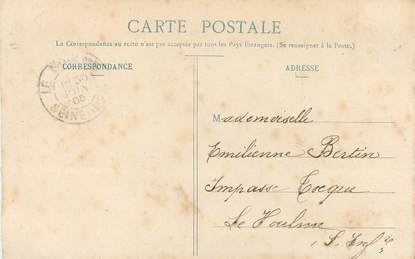 CARTE POSTALE
La Correspondance au recto n'est pas acceptée par tous les Pays Étrangers. (Se renseigner à la Poste.)
CORRESPONDANCE
ADRESSE
SEINE-INF
Mademoiselle
Emilienne Bertin
Impasse Tocque
Le Houlme
S. Infre